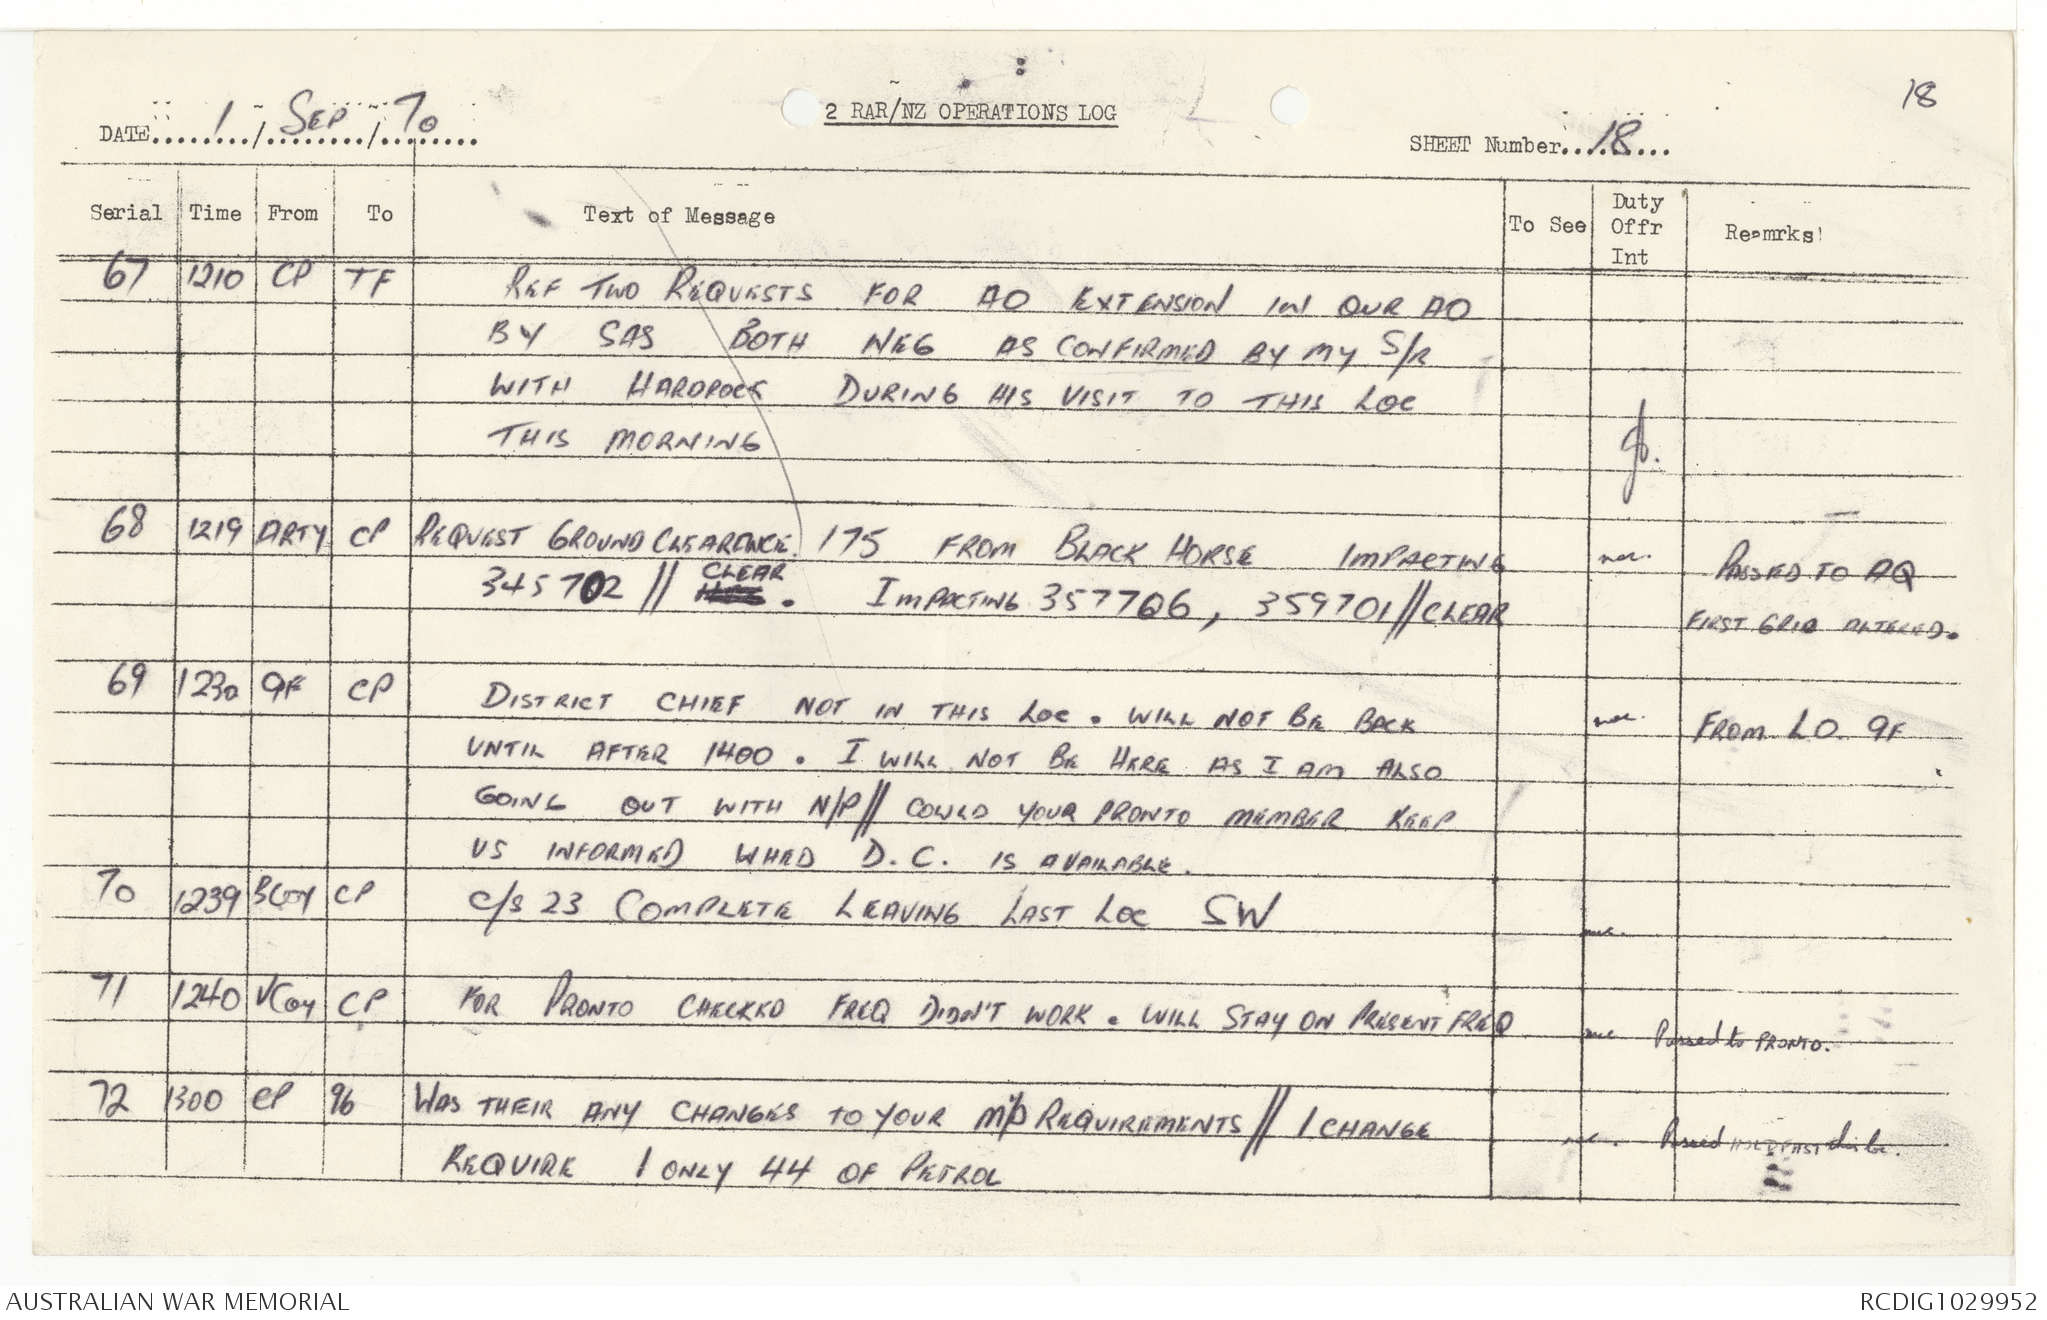 18
2 RAR/NZ OPERATIONS LOG
DATE 1 / SEP / 70
SHEET Number 18
Serial Time From To Text of Message To See Duty Offr Int Reamrks
67 1210 CP TF REF TWO REQUESTS FOR AO EXTENSION IN OUR AO
BY SAS BOTH NEG AS CONFIRMED BY MY S/R
WITH DURING HIS VISIT TO THIS LOC
THIS MORNING
68 1219 ARTY CP REQUEST GROUND CLEARENCE. 175 FROM BLACK HORSE IMPACTING PASSED TO AQ
345702 // CLEAR . IMPACTING 357706, 359701 // CLEAR FIRST GRID ALTERED.
69 1230 9F CP DISTRICT CHIEF NOT IN THIS LOC. WILL NOT BE BACK FROM LO. 9F
UNTIL AFTER 1400. I WILL NOT BE HERE AS I AM ALSO
GOING OUT WITH N/P // COULD YOUR PRONTO MEMBER KEEP
US INFORMED WHEN D.C. IS AVAILABLE.
70 1239 BCOY CP C/S 23 COMPLETE LEAVING LAST LOC SW
71 1240 VCoy CP FOR PRONTO CHECKED FREQ DIDN'T WORK. WILL STAY ON PRESENT FREQ Passed to PRONTO.
72 1300 CP 96 WAS THEIR ANY CHANGES TO YOUR M/P REQUIREMENTS // 1 CHANGE Passed HOLDFAST
REQUIRE 1 ONLY 44 OF PETROL
AUSTRALIAN WAR MEMORIAL
RCDIG1029952